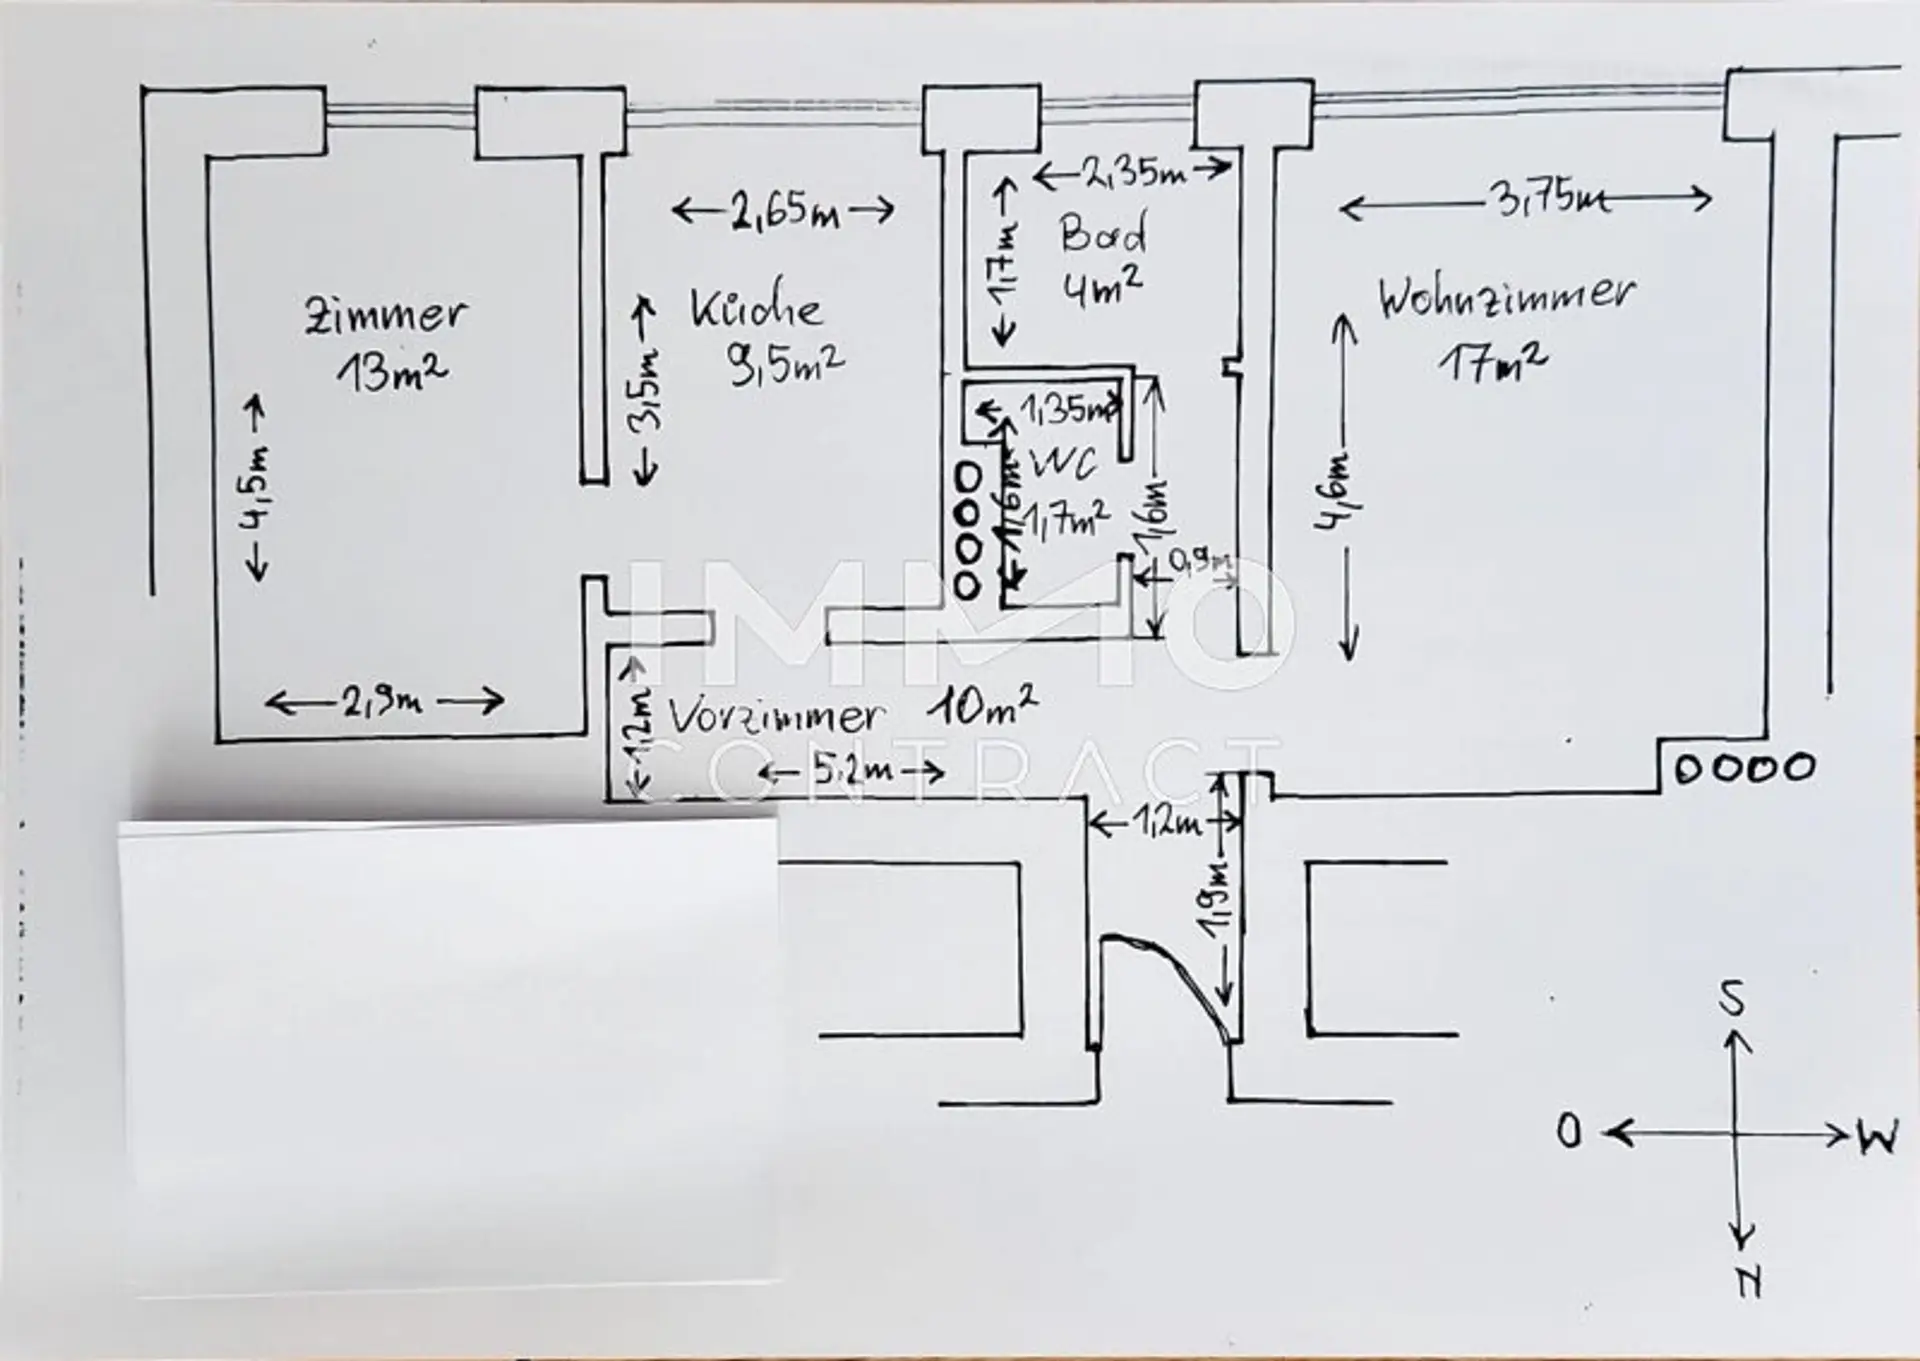 2,35m
3,75m
2,65m
Bad
4m²
1,17m
Zimmer
13m²
Küche
9,5m²
Wohnzimmer
17m²
3,5m
1,35m
WC
1,7m²
1,6m
1,6m
0,9m
4,5m
4,6m
IMMO
CONTRACT
2,9m
1,2m
Vorzimmer 10m²
5,2m
1,2m
1,9m
S
O
W
N